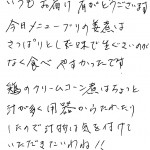 いつもお届け有がとうございます
今日メニューブリの姜煮は
さっぱりとした味で生ぐさいのが
なく食べやすかったです
鶏のクリームコーン煮はちょっと
汁が多く用器からもれたり
したので汁物は気を付けて
いただきたいわね!!